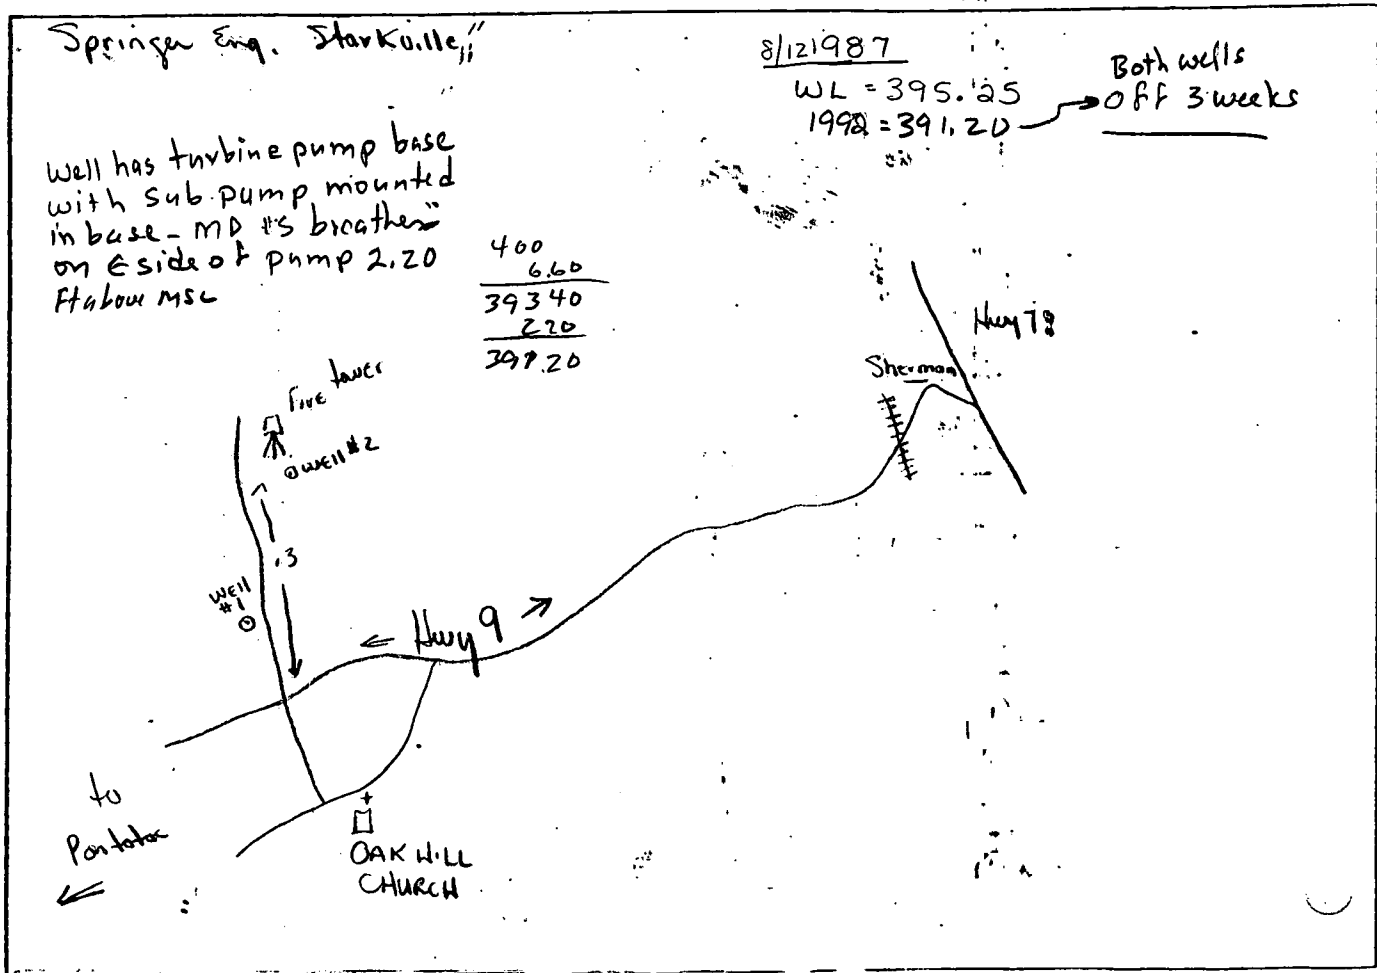 Springer Eng. Starkville,
8/12/1987
WL = 395.25
1992 = 391.20
Both wells
off 3 weeks
Well has turbine pump base
with Sub. pump mounted
in base - MP is breather
on E side of pump 2.20
Ft above MSL
400
6.60
39340
220
391.20
Fire tower
Well #2
.3
Well
#1
Hwy 9
Sherman
Hwy 78
to
Pontotoc
OAK HILL
CHURCH